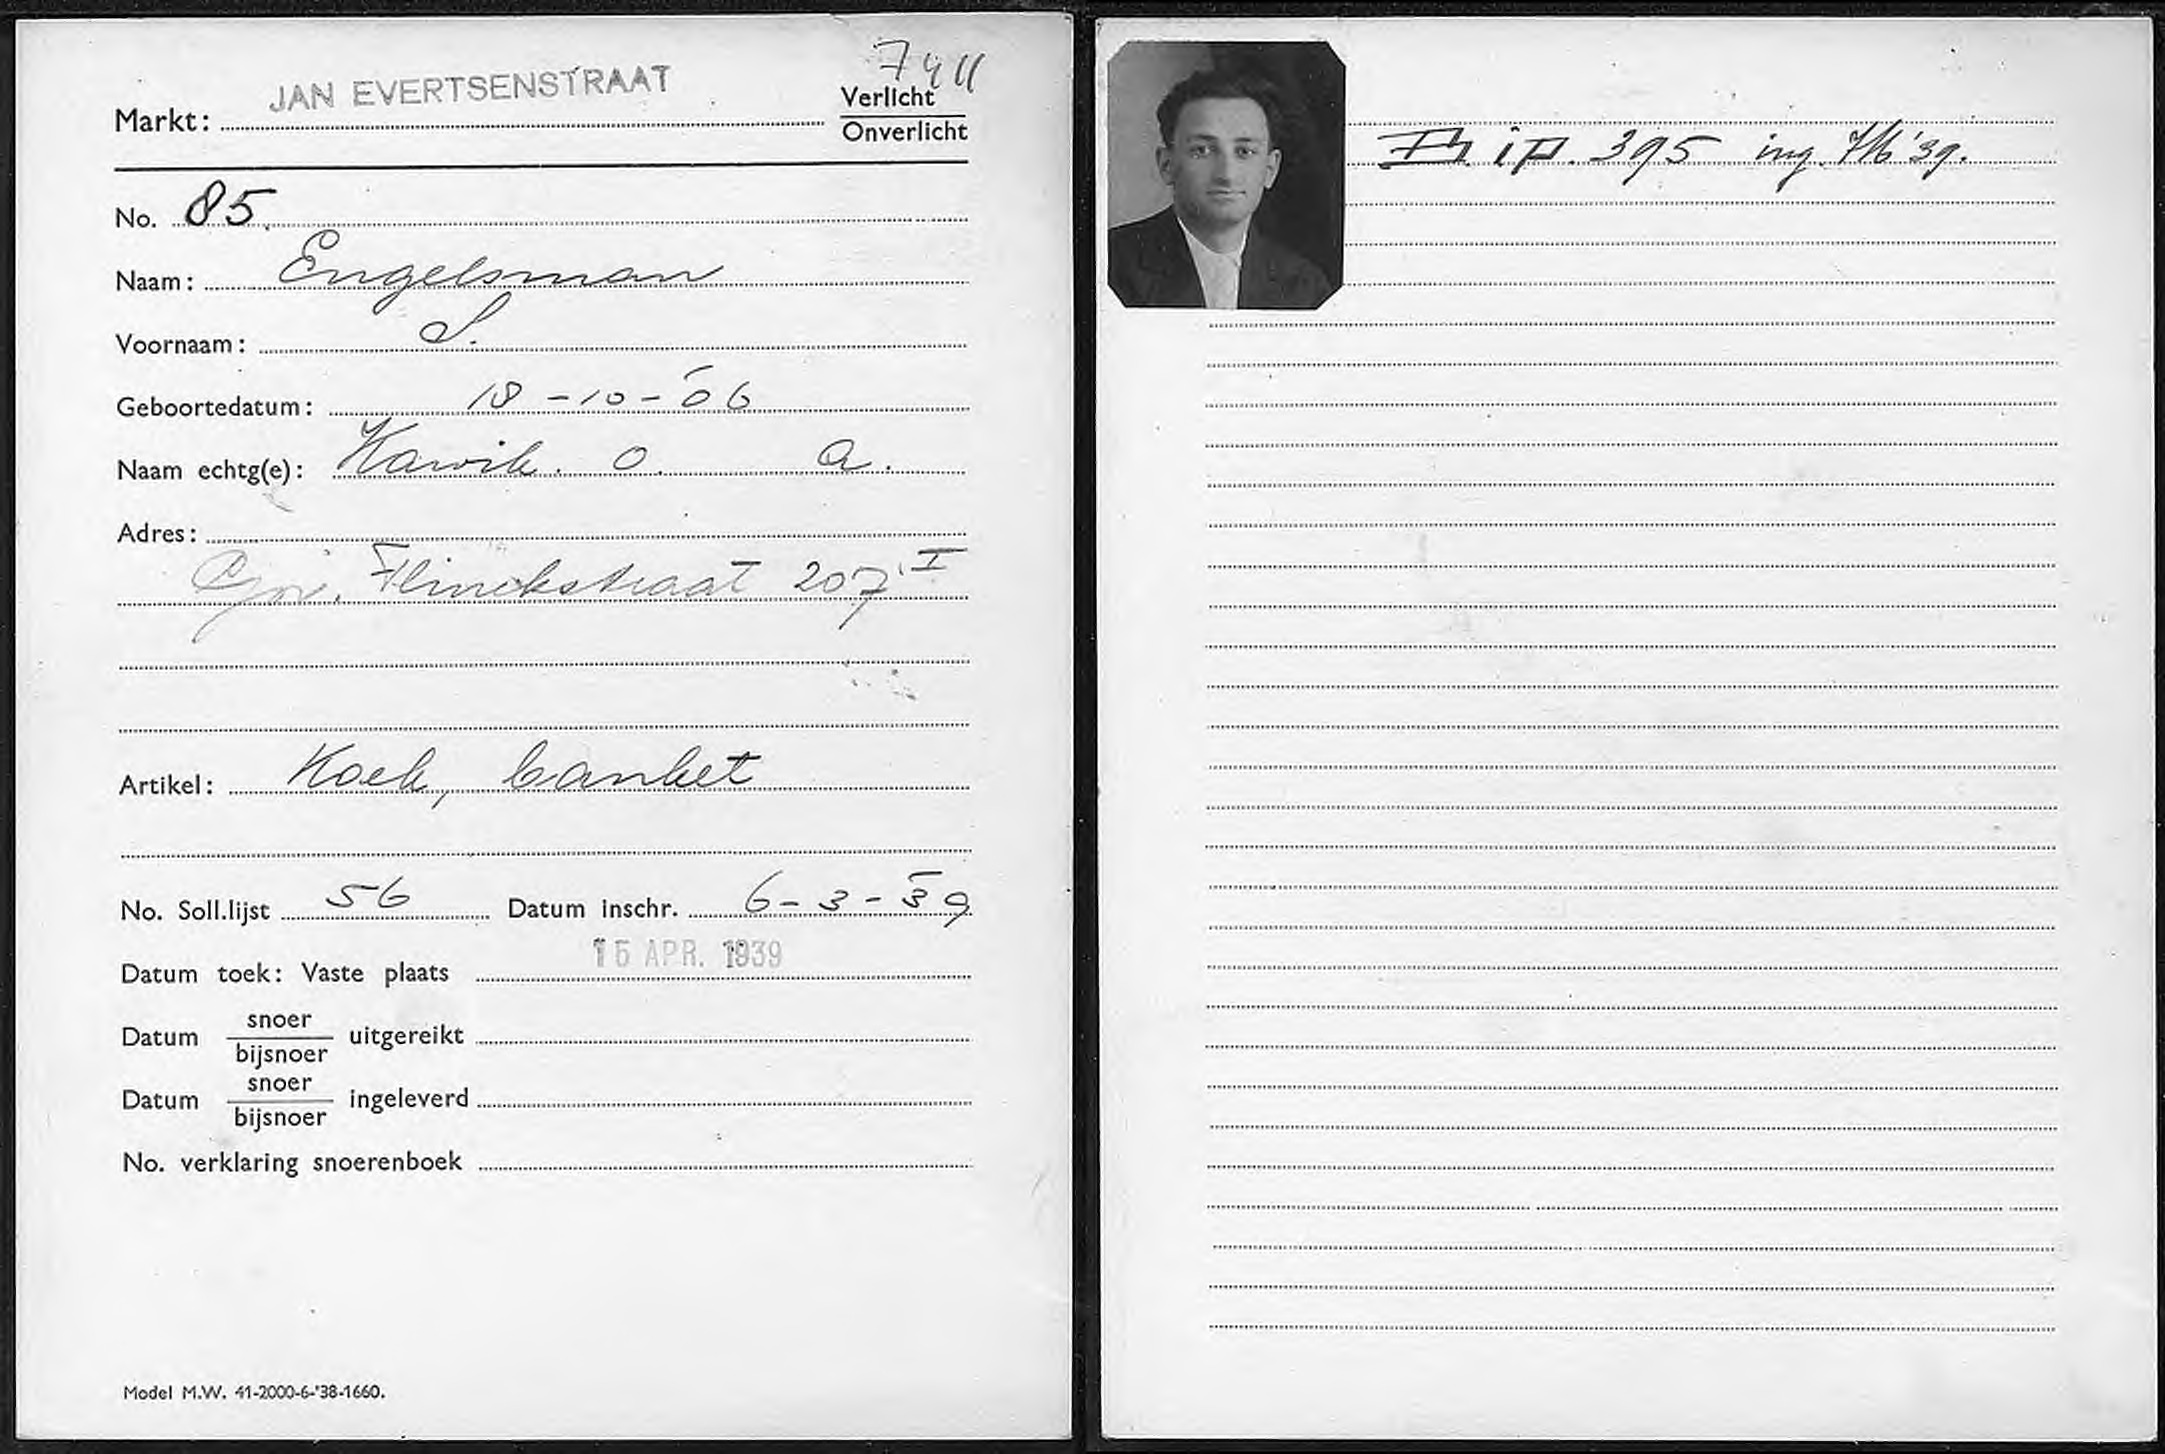 7411
JAN EVERTSENSTRAAT
Markt:
Verlicht
Onverlicht
No. 85
Naam: Engelsman
Voornaam: S.
Geboortedatum: 18-10-06
Naam echtg(e): O. A.
Adres:
Gov. Flinckstraat 207 I
Artikel: Koek, banket
No. Soll.lijst 56 Datum inschr. 6-3-39
Datum toek: Vaste plaats 15 APR. 1939
Datum snoer/bijsnoer uitgereikt
Datum snoer/bijsnoer ingeleverd
No. verklaring snoerenboek
Model M.W. 41-2000-6-'38-1660.
395 ing. '39.